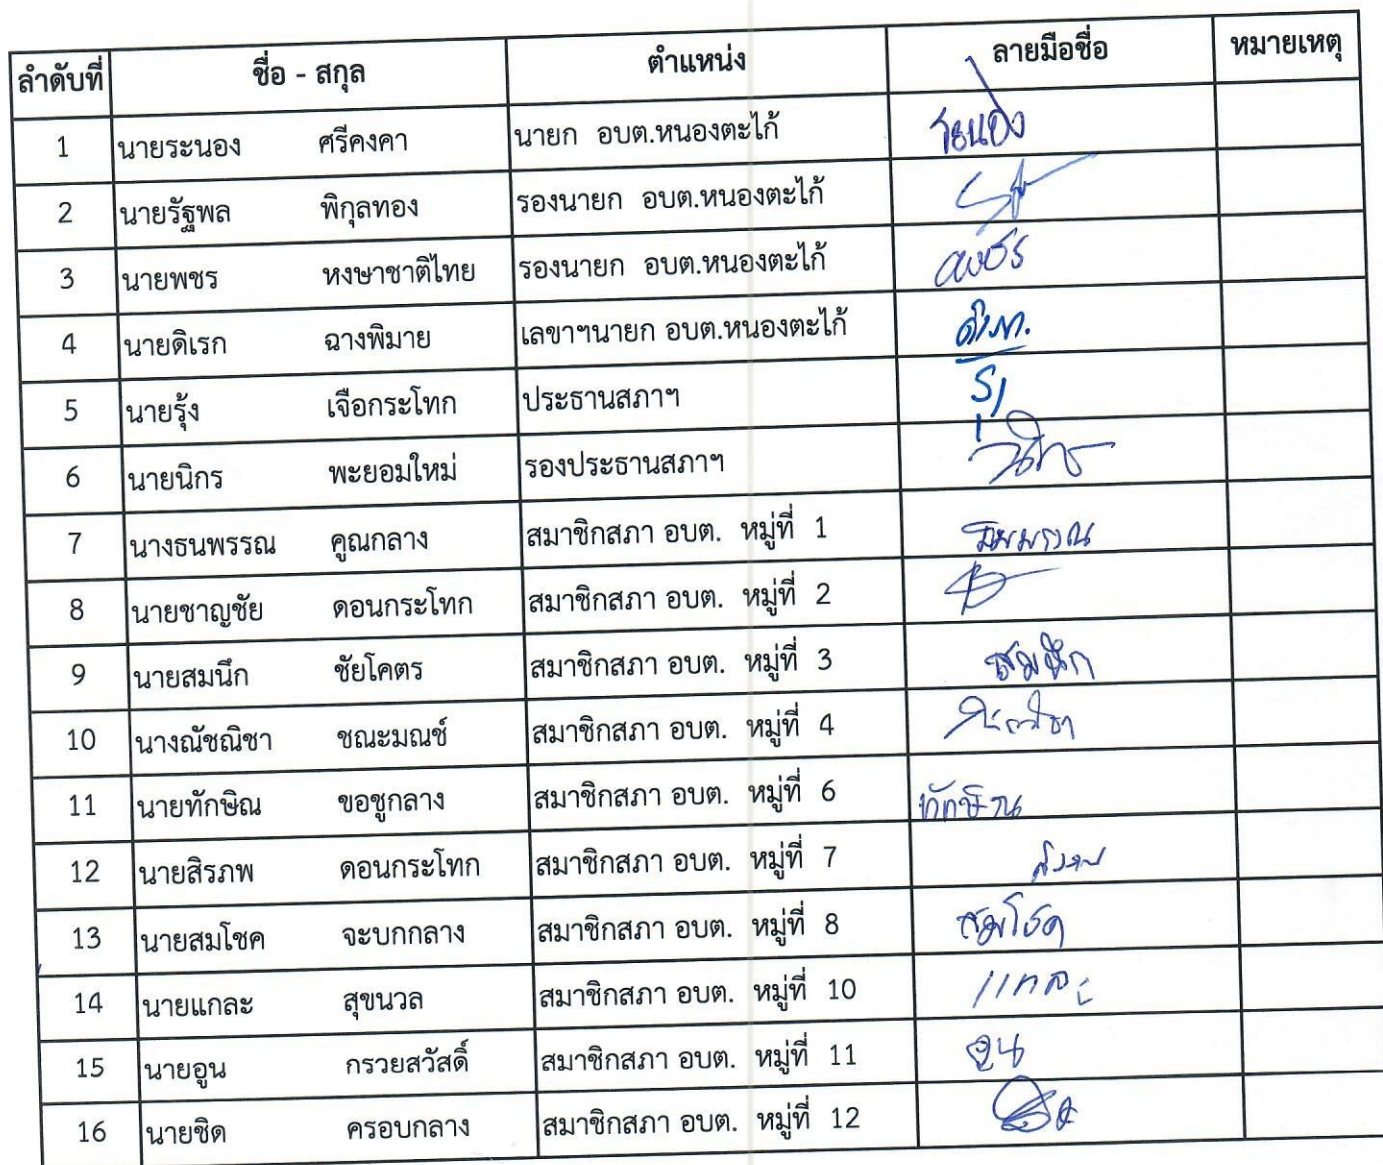 ลำดับที่ ชื่อ - สกุล ตำแหน่ง ลายมือชื่อ หมายเหตุ
1 นายระนอง ศรีคงคา นายก อบต.หนองตะไก้ ระนอง
2 นายรัฐพล พิกุลทอง รองนายก อบต.หนองตะไก้
3 นายพชร หงษาชาติไทย รองนายก อบต.หนองตะไก้
4 นายดิเรก ฉางพิมาย เลขาฯนายก อบต.หนองตะไก้
5 นายรุ้ง เจือกระโทก ประธานสภาฯ
6 นายนิกร พะยอมใหม่ รองประธานสภาฯ นิกร
7 นางธนพรรณ คูณกลาง สมาชิกสภา อบต. หมู่ที่ 1 ธนพรรณ
8 นายชาญชัย ดอนกระโทก สมาชิกสภา อบต. หมู่ที่ 2
9 นายสมนึก ชัยโคตร สมาชิกสภา อบต. หมู่ที่ 3 สมนึก
10 นางณัชณิชา ชณะมณช์ สมาชิกสภา อบต. หมู่ที่ 4
11 นายทักษิณ ขอชูกลาง สมาชิกสภา อบต. หมู่ที่ 6 ทักษิณ
12 นายสิรภพ ดอนกระโทก สมาชิกสภา อบต. หมู่ที่ 7
13 นายสมโชค จะบกกลาง สมาชิกสภา อบต. หมู่ที่ 8 สมโชค
14 นายแกละ สุขนวล สมาชิกสภา อบต. หมู่ที่ 10 แกละ
15 นายอูน กรวยสวัสดิ์ สมาชิกสภา อบต. หมู่ที่ 11 อูน
16 นายชิด ครอบกลาง สมาชิกสภา อบต. หมู่ที่ 12